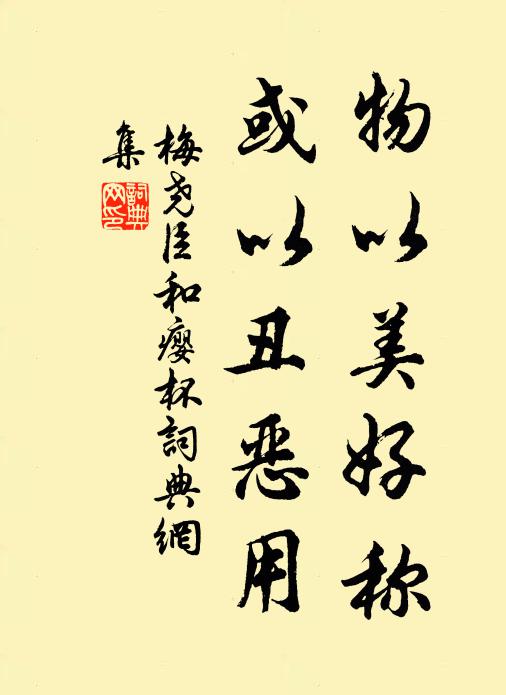 物以美好称
或以丑恶用
梅尧臣和瘿杯词典網
集
詞典網印